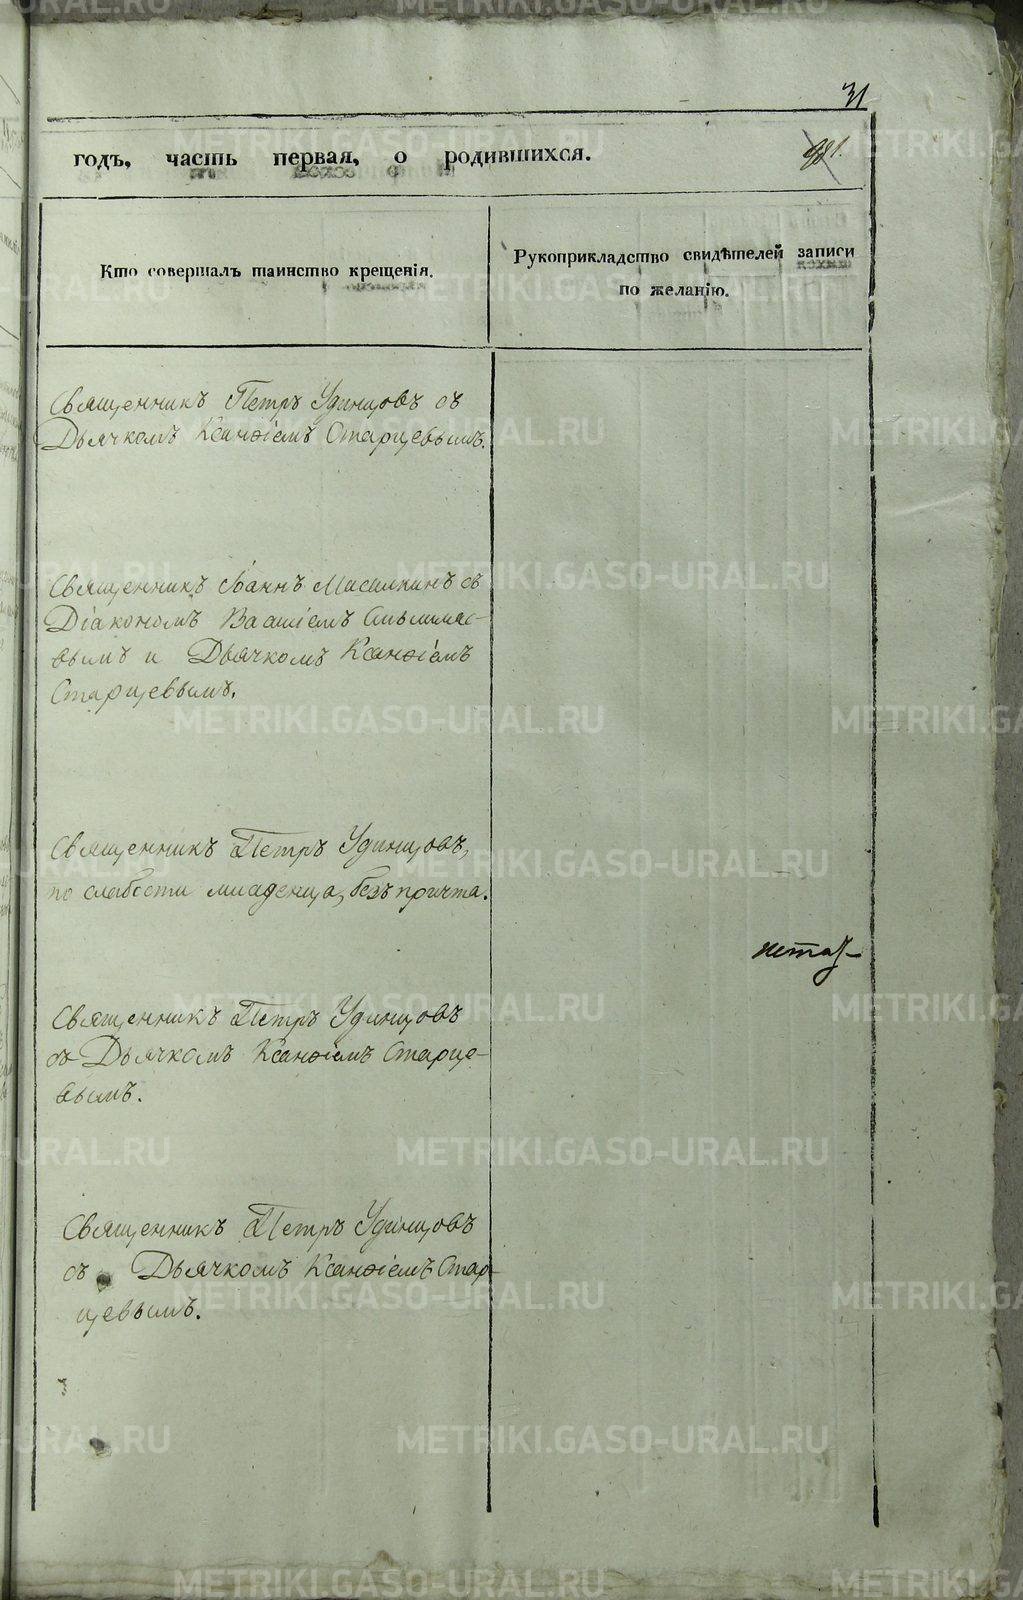 31
годъ, часть первая, о родившихся.
Кто совершалъ таинство крещенія.
Рукоприкладство свидѣтелей записи
по желанію.
Священникъ Петръ Удинцовъ съ
Дьячкомъ Ксанѳіемъ Старцевымъ.
Священникъ Іоаннъ Масалкинъ съ
Діакономъ Василіемъ
вымъ и Дьячкомъ Ксанѳіемъ
Старцевымъ.
Священникъ Петръ Удинцовъ,
по слабости младенца, безъ причта.
Священникъ Петръ Удинцовъ
съ Дьячкомъ Ксанѳіемъ Старце-
вымъ.
Священникъ Петръ Удинцовъ
съ Дьячкомъ Ксанѳіемъ Стар-
цевымъ.
METRIKI.GASO-URAL.RU